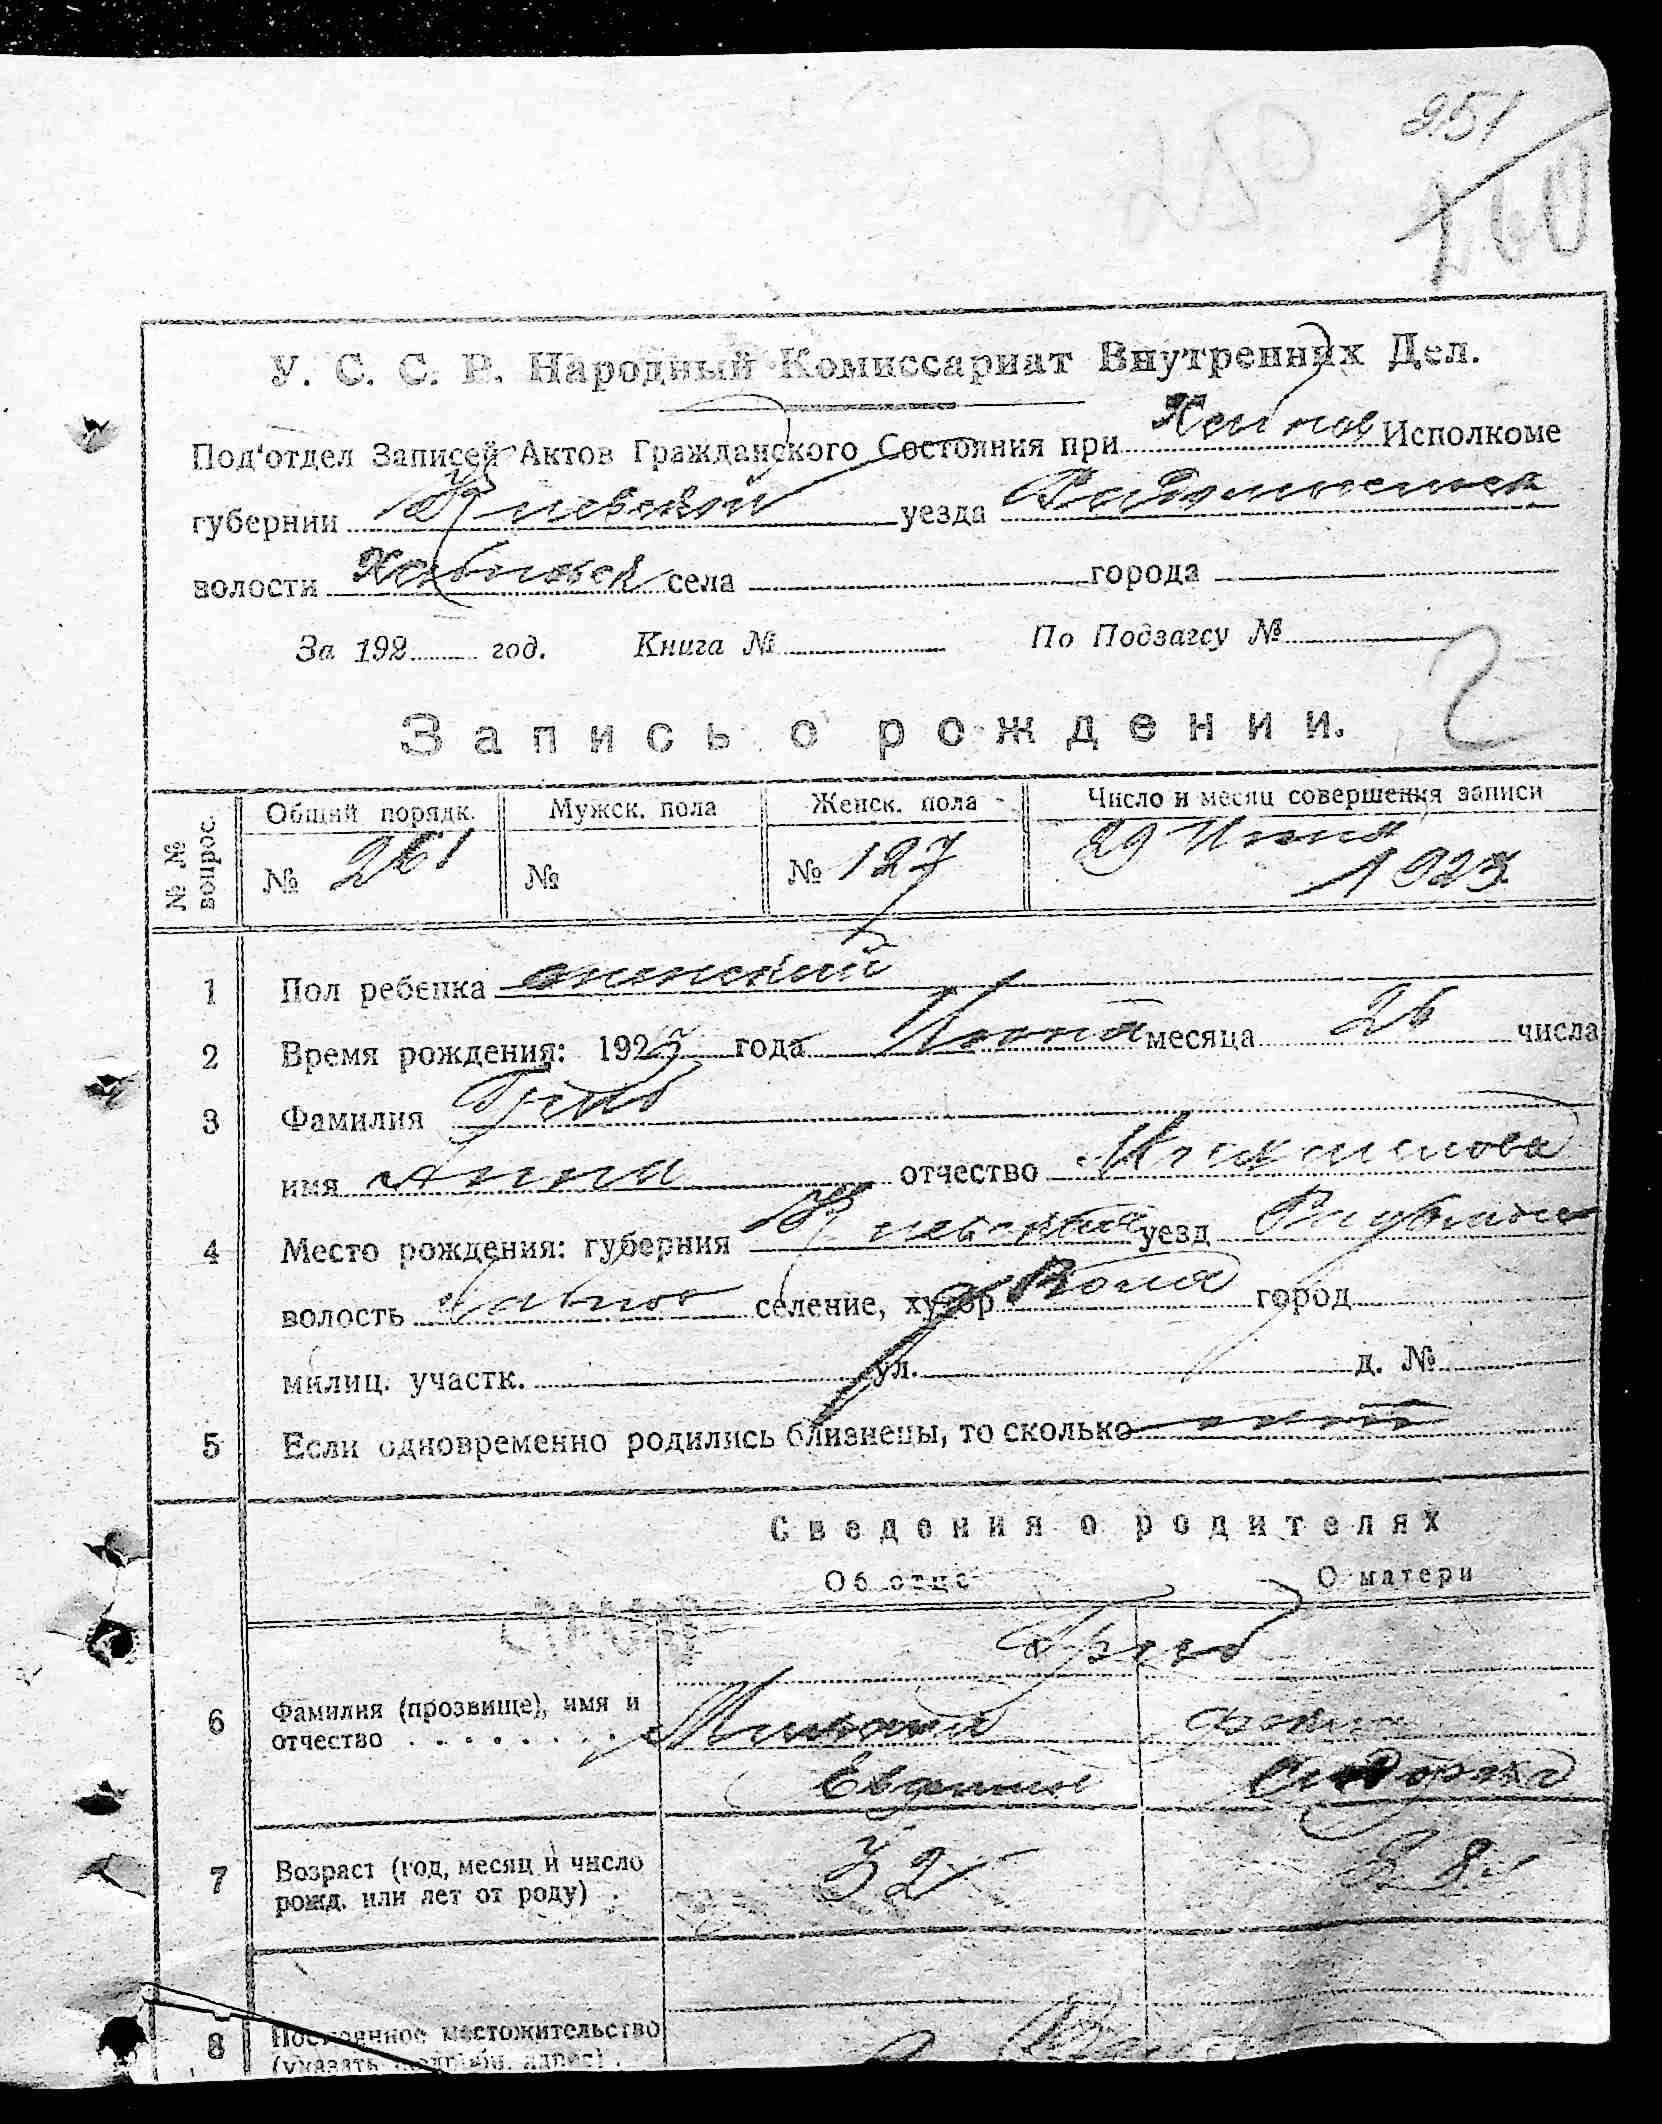 251
260
У. С. С. Р. Народный Комиссариат Внутренних Дел.
Под'отдел Записей Актов Гражданского Состояния при Исполкоме
губернии Киевской уезда Радомысльск
волости Хабновск села города
За 192 год. Книга № По Подзагсу №
Запись о рождении.
№ № вопрос. Общий порядк. Мужск. пола Женск. пола Число и месяц совершения записи
№ 261 № № 127 29 Июня
1923
1 Пол ребенка женский
2 Время рождения: 1923 года Июня месяца 26 числа
3 Фамилия Гриб
имя Анна отчество
4 Место рождения: губерния Киевская уезд
волость селение, хутор Воля город
милиц. участк. ул. д. №
5 Если одновременно родились близнецы, то сколько
Сведения о родителях
Об отце О матери
Гриб
6 Фамилия (прозвище), имя и
отчество . . . . . . . .
7 Возраст (год, месяц и число 32
рожд. или лет от роду) .
8 Постоянное местожительство
(указать подробн. адрес) .